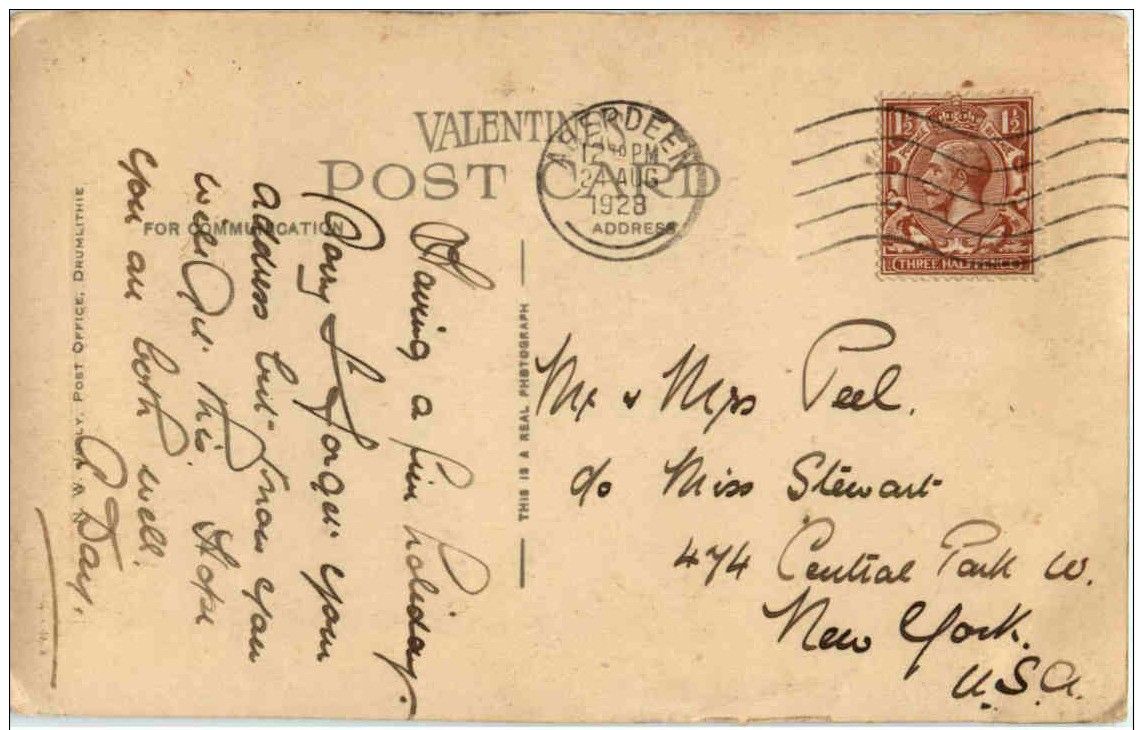 VALENTINE'S
POST CARD
FOR COMMUNICATION
ADDRESS
ABERDEEN
12 PM
2 AUG
1928
1½ 1½
THREE HALFPENCE
Having a fine holiday.
Sorry I forget your
address but know you
will get this. Hope
you are both well.
Day.
POST OFFICE, DRUMLITHIE
THIS IS A REAL PHOTOGRAPH
Mr & Mrs Peel.
c/o Miss Stewart
474 Central Park W.
New York.
U.S.A.